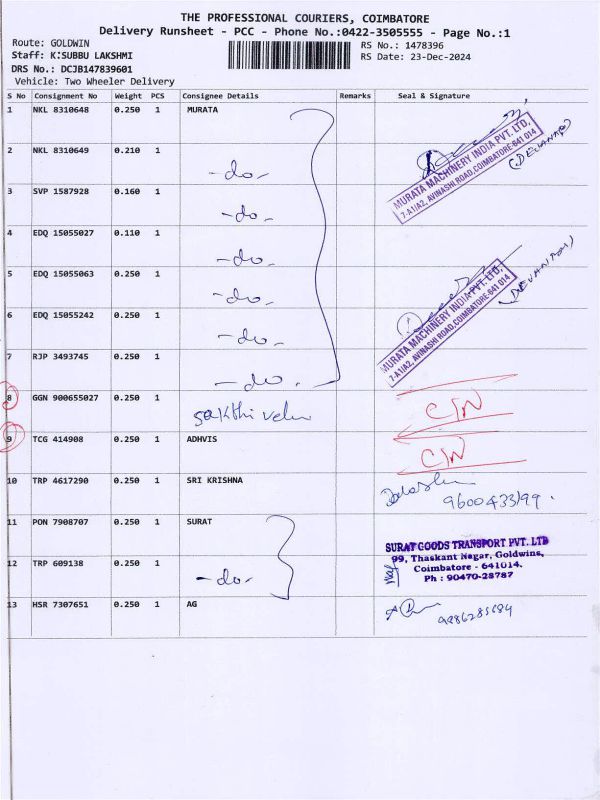 THE PROFESSIONAL COURIERS, COIMBATORE
Delivery Runsheet - PCC - Phone No.:0422-3505555 - Page No.:1
Route: GOLDWIN
Staff: K:SUBBU LAKSHMI
DRS No.: DCJB147839601
Vehicle: Two Wheeler Delivery
RS No.: 1478396
RS Date: 23-Dec-2024
S No Consignment No Weight PCS Consignee Details Remarks Seal & Signature
1 NKL 8310648 0.250 1 MURATA
MURATA MACHINERY INDIA PVT. LTD,
7-A1/A2, AVINASHI ROAD,COIMBATORE-641 014
2 NKL 8310649 0.210 1 -do-
3 SVP 1587928 0.160 1 -do-
4 EDQ 15055027 0.110 1 -do-
5 EDQ 15055063 0.250 1 -do-
MURATA MACHINERY INDIA PVT. LTD,
7-A1/A2, AVINASHI ROAD,COIMBATORE-641 014
6 EDQ 15055242 0.250 1 -do-
7 RJP 3493745 0.250 1 -do-
8 GGN 900655027 0.250 1 sakthi velu
9 TCG 414908 0.250 1 ADHVIS
10 TRP 4617290 0.250 1 SRI KRISHNA
11 PON 7908707 0.250 1 SURAT
SURAT GOODS TRANSPORT PVT. LTD
99, Thaskant Nagar, Goldwins,
Coimbatore - 641014.
Ph : 90470-28787
12 TRP 609138 0.250 1 -do-
13 HSR 7307651 0.250 1 AG